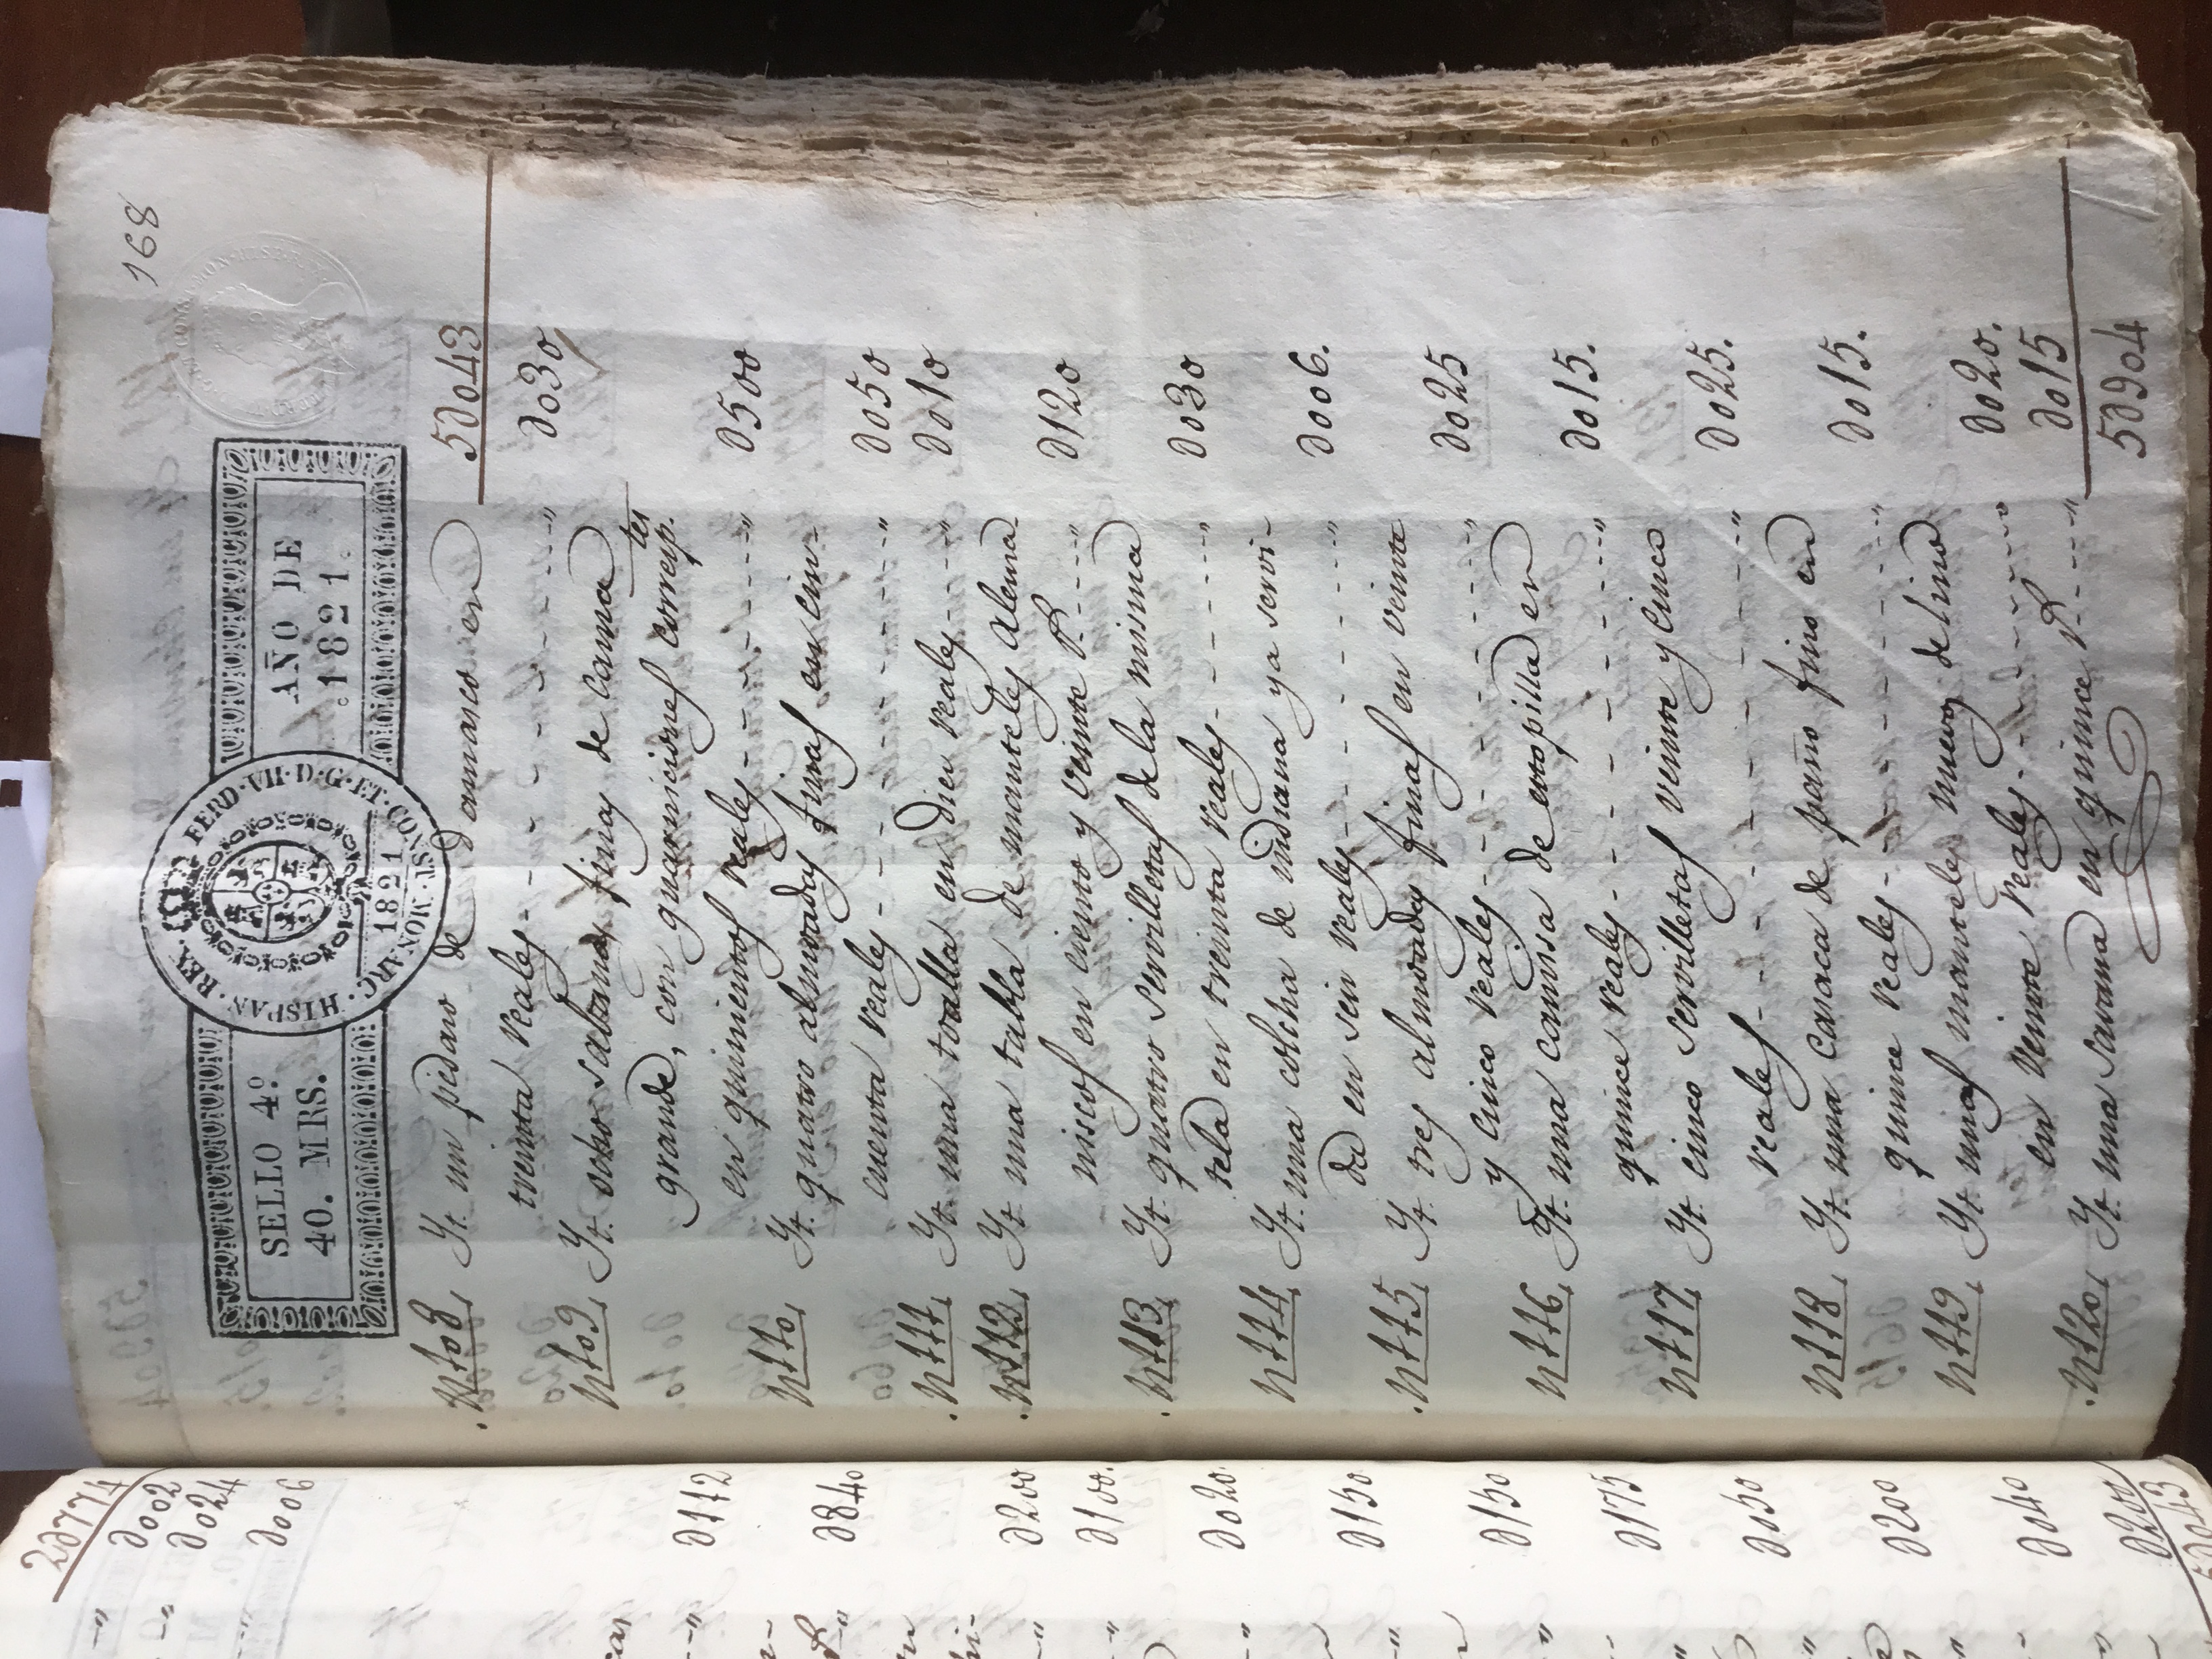 168
SELLO 4º
40. MRS.
FERD · VII · D · G · ET · CONST · MONARC · HISPAN · REX ·
1821
AÑO DE
1821.
5d043
.N.108, Yt. un pedazo de Damasco en
treinta reales - - - - " d030
N.109, Yt. ocho sabanas finas de Cama
grande, con guarniciones corresp.tes
en quinientos reales - - - - " d500
N.110, Yt. quatro almoadas finas en cin-
cuenta reales - - - - " d050
.N.111, Yt. una toalla en diez reales - - - " d010
.N.112, Yt. una tabla de manteles alema-
niscos en ciento y veinte r.s - - - " d120
.N.113, Yt. quatro servilletas de la misma
tela en treinta reales - - - - " d030
N.114, Yt. una colcha de indiana ya servi-
da en seis reales - - - - " d006.
.N.115, Yt. tres almoadas finas en veinte
y cinco reales - - - - " d025
N.116, Yt. una camisa de estopilla en
quince reales - - - - " d015.
N.117, Yt. cinco servilletas veinte y cinco
reales - - - - " d025.
N.118, Yt. una casaca de paño fino en
quince reales - - - - " d015.
N.119, Yt. unos manteles nuevos de lino
en veinte reales - - - - d020.
.N.120, Yt. una Savana en quince r.s - - - " d015
5d904
2d774
d002
d024
d006
d112
d840
d200
d100.
d020.
d150
d150
d175
d050
d200
d040
d200
5d043